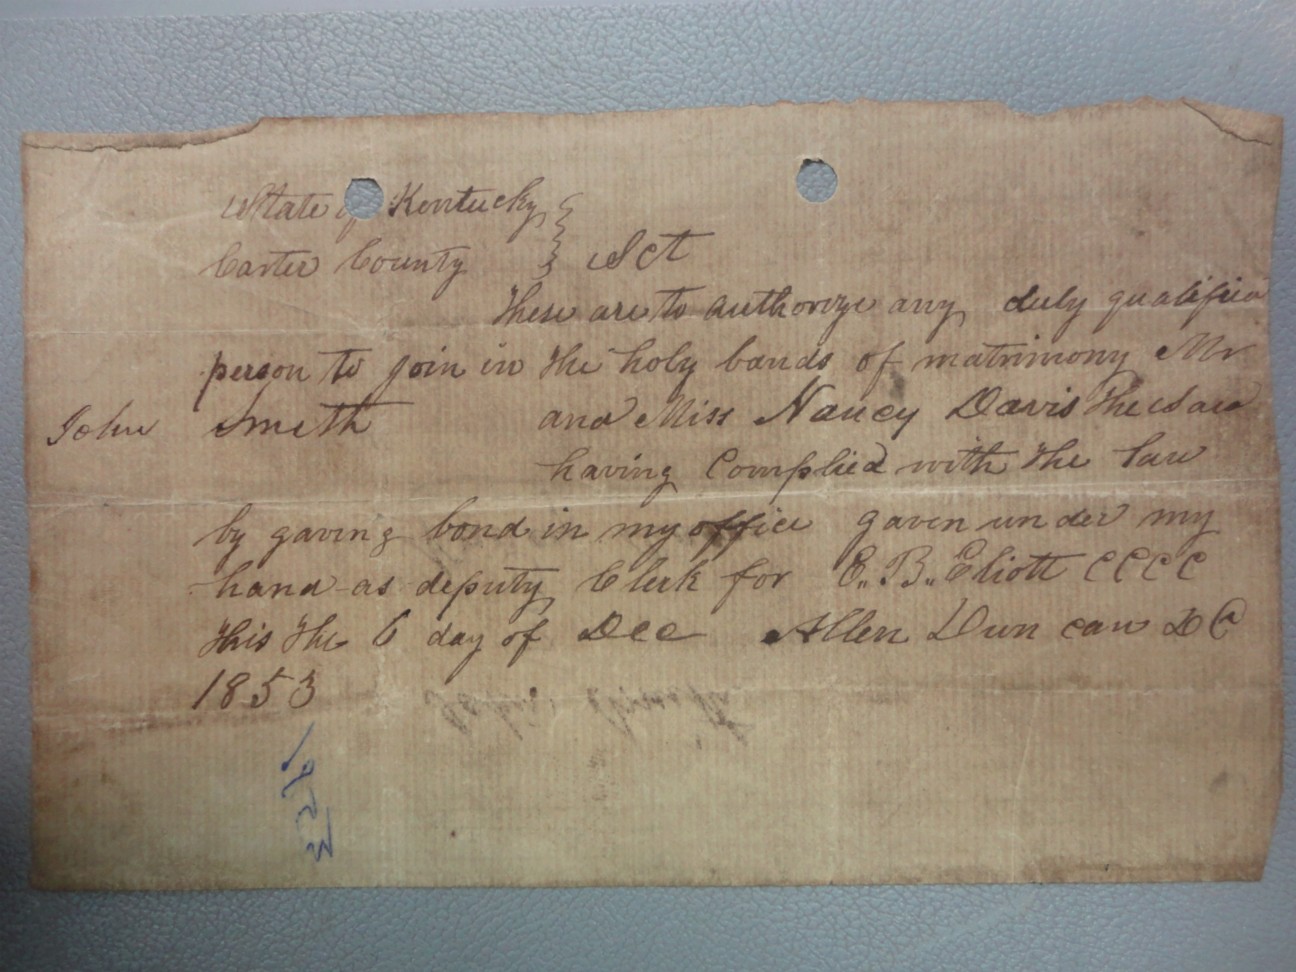 State of Kentucky }
Carter County } Sct
These are to authorize any duly qualified
person to join in the holy bands of matrimony Mr
John Smith and Miss Nancy Davis the said
having complied with the law
by gaving bond in my office gaven under my
hand as deputy Clerk for E. B. Eliott CCCC
this the 6 day of Dec Allen Duncan DC
1853